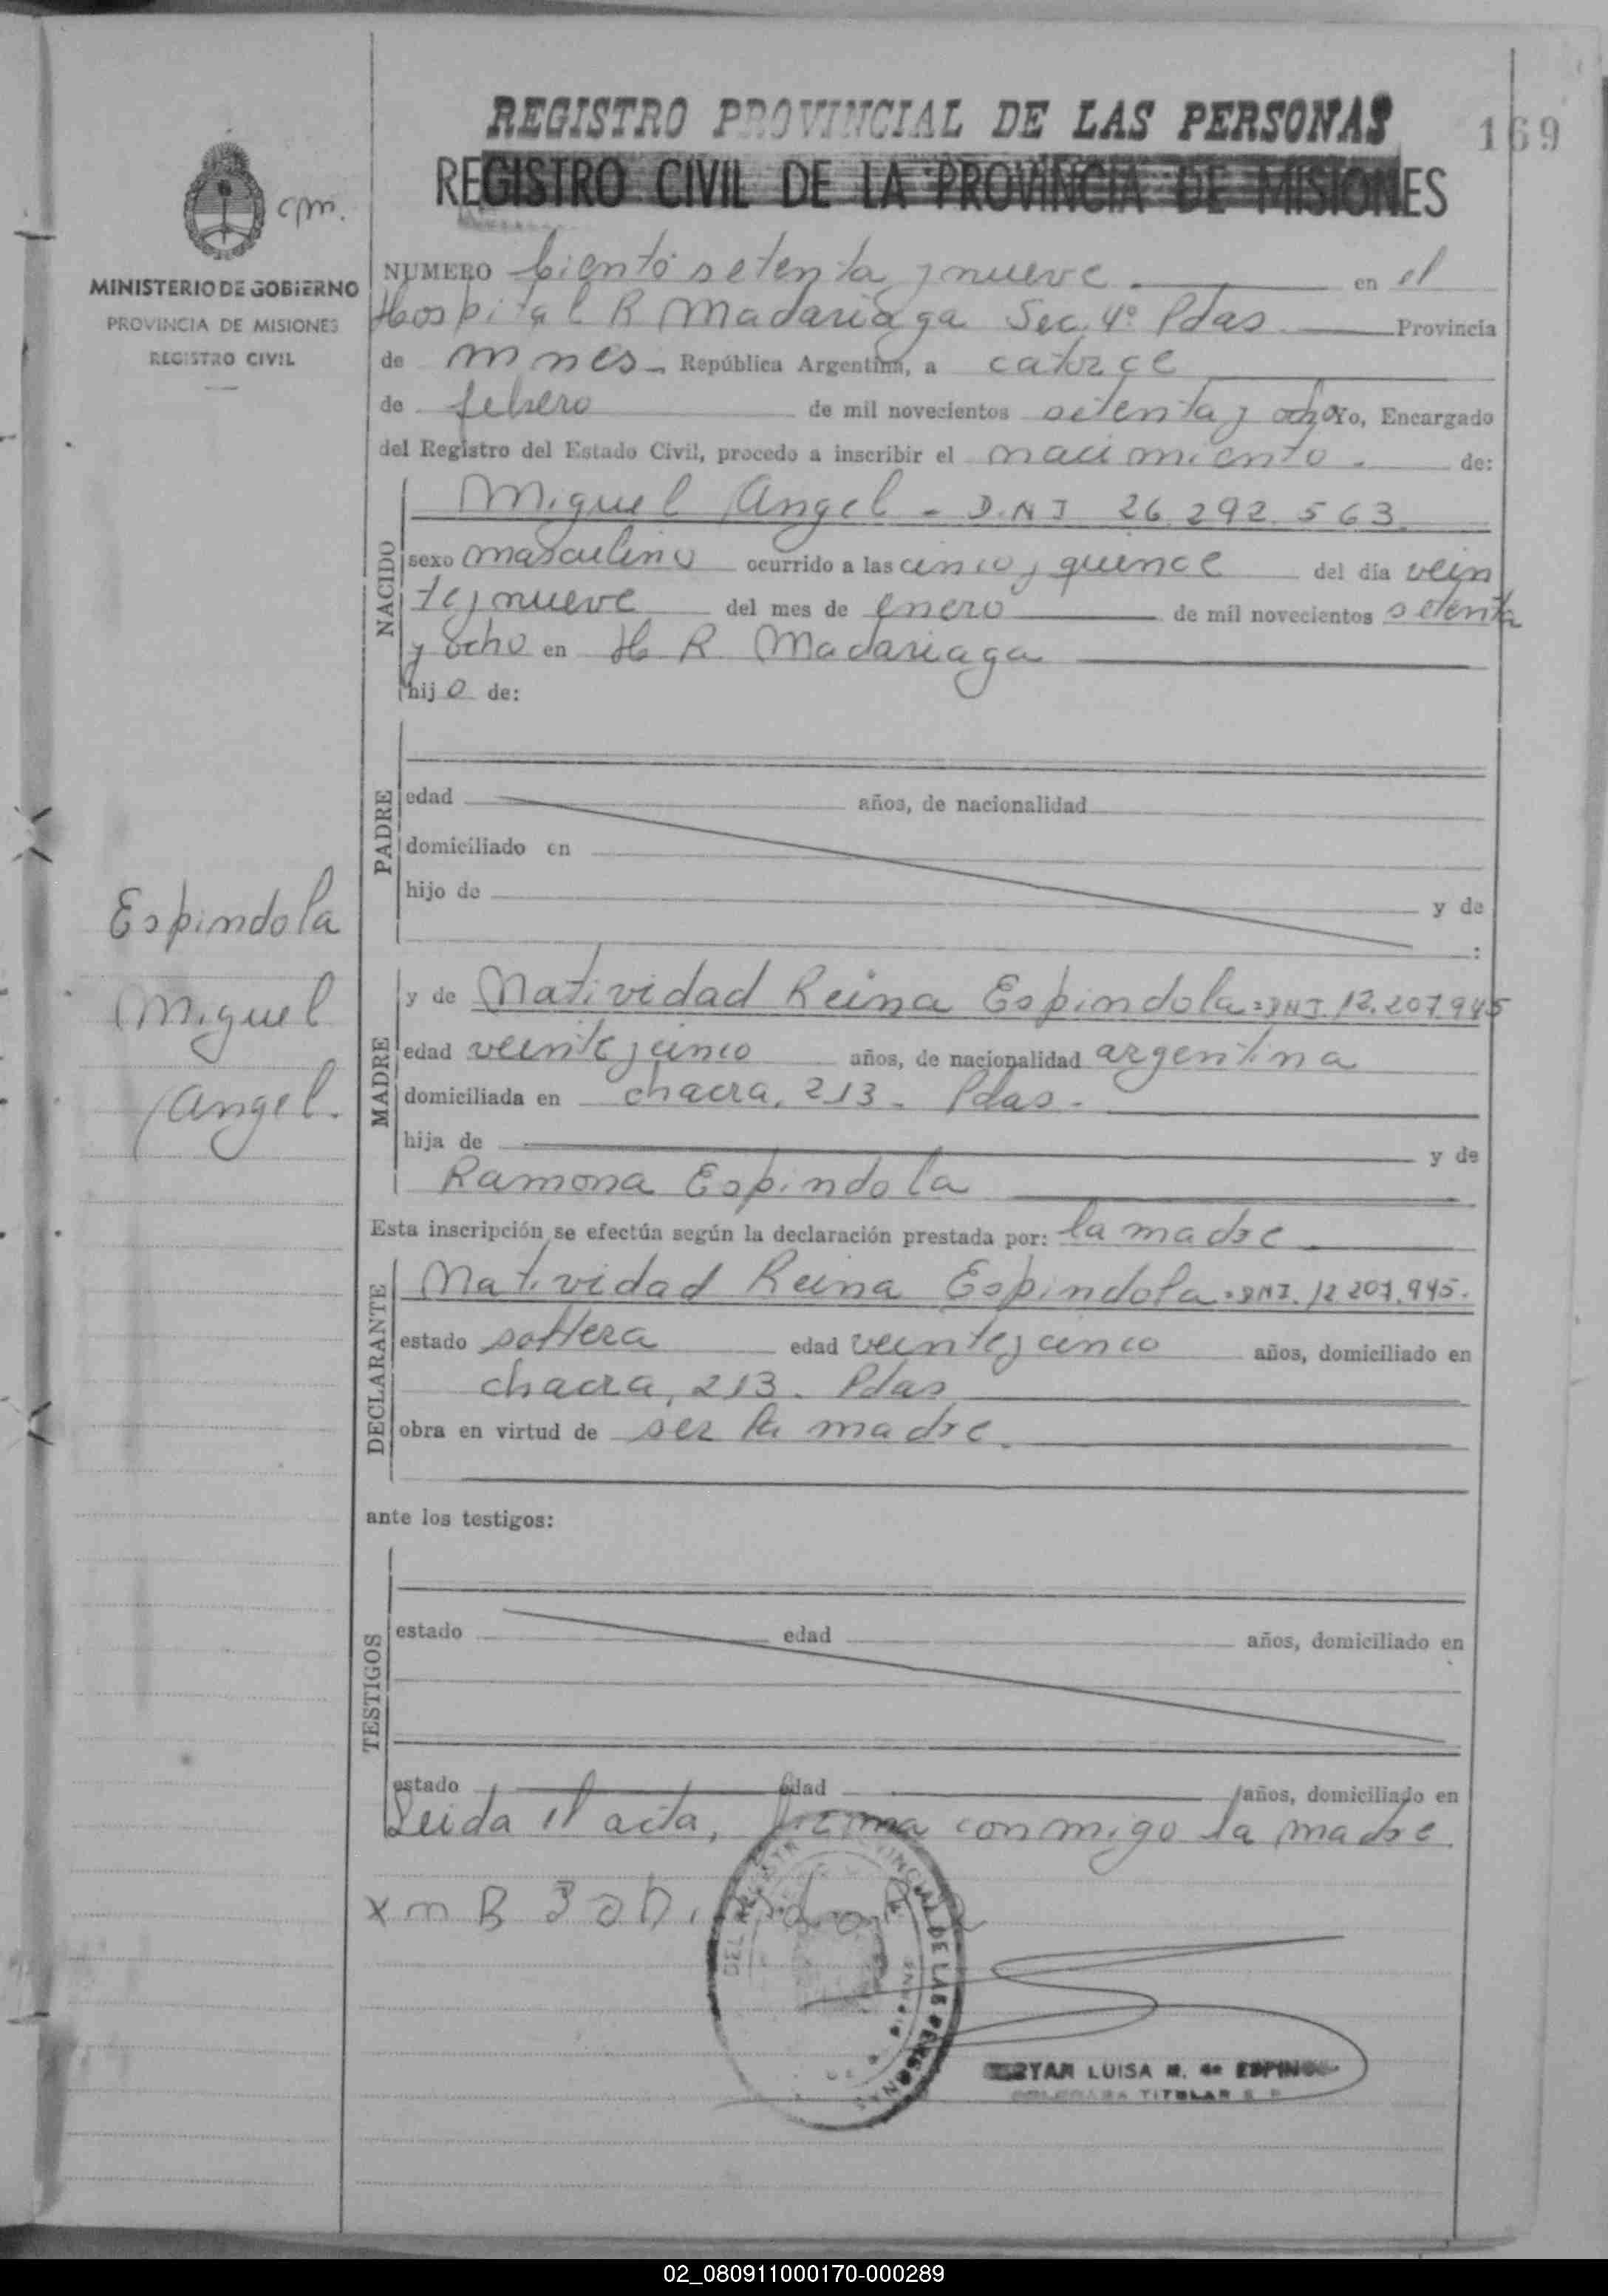 REGISTRO PROVINCIAL DE LAS PERSONAS
169
REGISTRO CIVIL DE LA PROVINCIA DE MISIONES
cpm.
MINISTERIO DE GOBIERNO
PROVINCIA DE MISIONES
REGISTRO CIVIL
NUMERO Ciento setenta y nueve en el
Hospital R Madariaga Sec. 4º Pdas. Provincia
de Mnes República Argentina, a catorce
de febrero de mil novecientos setenta y ocho Yo, Encargado
del Registro del Estado Civil, procedo a inscribir el nacimiento. de:
NACIDO
Miguel Angel - D.N.I 26.292.563.
sexo masculino ocurrido a las cinco y quince del día vein
te y nueve del mes de enero de mil novecientos setenta
y ocho en H R Madariaga
hijo de:
PADRE
edad años, de nacionalidad
domiciliado en
hijo de y de
:
Espindola
Miguel
Angel.
MADRE
y de Natividad Reina Espindola = DNI. 12.207.945
edad veinte y cinco años, de nacionalidad argentina
domiciliada en chacra, 213 - Pdas -
hija de y de
Ramona Espindola
Esta inscripción se efectúa según la declaración prestada por: la madre
DECLARANTE
Natividad Reina Espindola = DNI. 12.207.945.
estado soltera edad veinte y cinco años, domiciliado en
chacra, 213. Pdas
obra en virtud de ser la madre.
ante los testigos:
TESTIGOS
estado edad años, domiciliado en
estado edad años, domiciliado en
Leida el acta, firma conmigo la madre
DE LAS PERSONAS
LUISA M. de
TITULAR
02_080911000170-000289